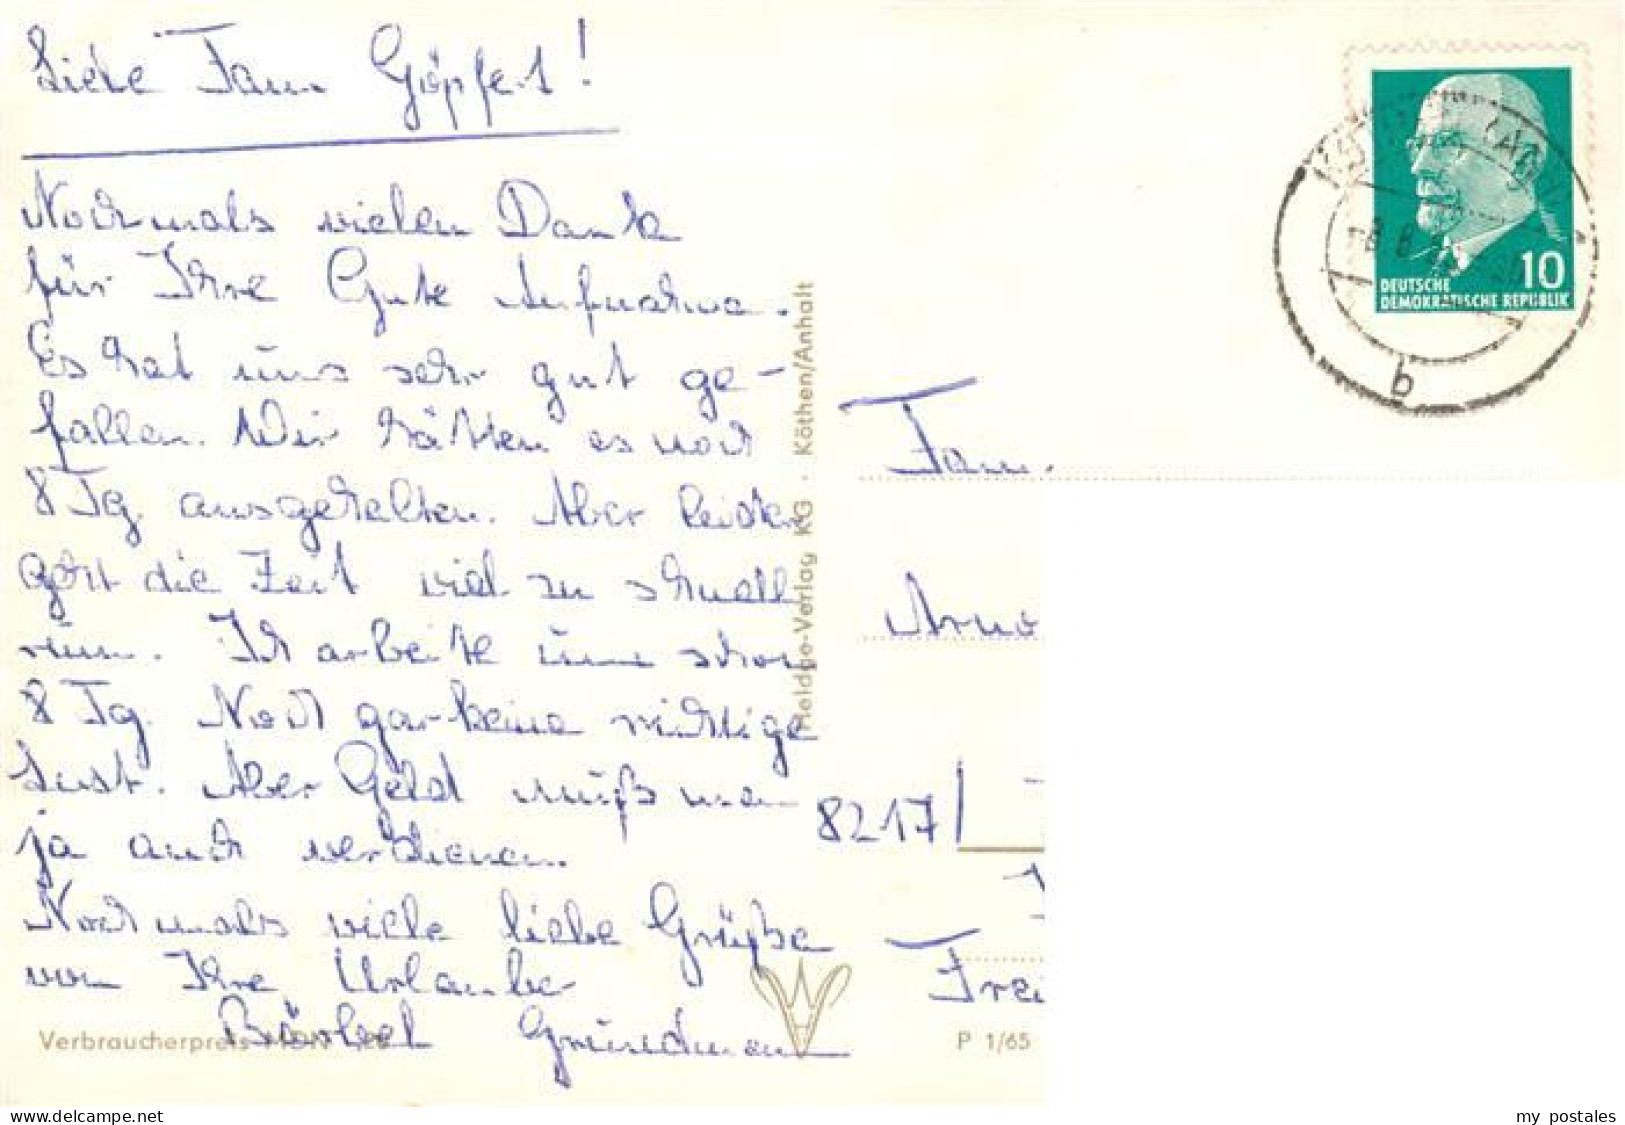 Liebe Fam. Göpfert!
Nochmals vielen Dank
für Ihre Gute Aufnahme.
Es hat uns sehr gut ge-
fallen. Wir hätten es noch
8 Tg. ausgehalten. Aber leider
geht die Zeit viel zu schnell
rum. Ich arbeite nun schon
8 Tg. Noch gar keine richtige
Lust. Aber Geld muß man
ja auch verdienen.
Nochmals viele liebe Grüße
von Ihre Urlauber
Bärbel Grundmann
Verbraucherpreis MDN
Heldge-Verlag KG · Köthen/Anhalt
DEUTSCHE
DEMOKRATISCHE REPUBLIK
10
b
Fam.
Arno
8217
Frei
P 1/65
www.delcampe.net
my_postales